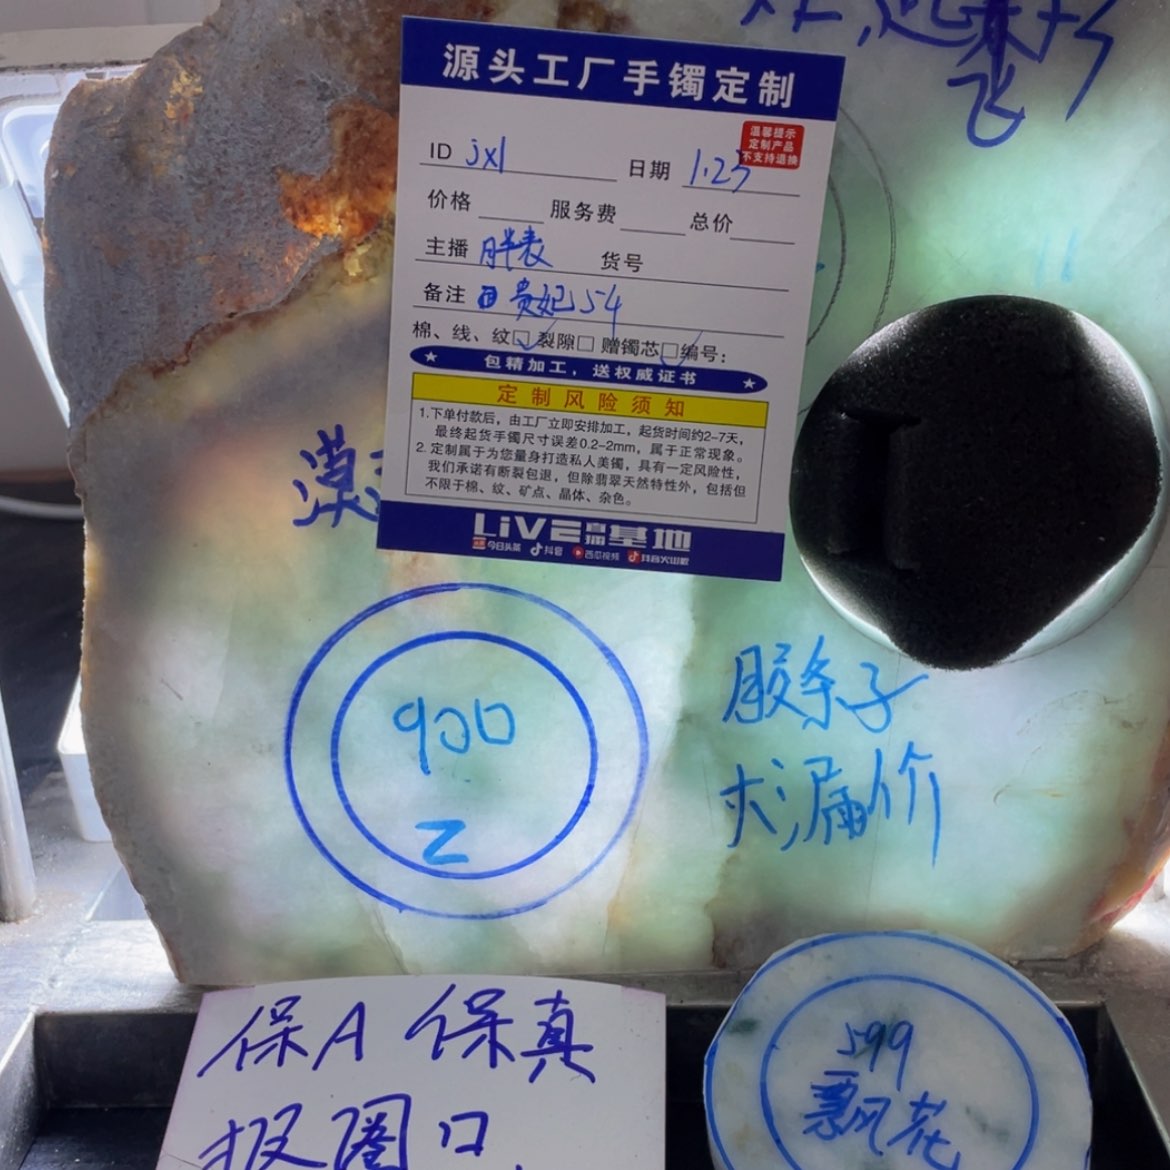 源头工厂手镯定制
温馨提示
定制产品
不支持退换
ID jxl 日期 1.23
价格 服务费 总价
主播 胖表 货号
备注 贵妃 54
棉、线、纹□ 裂隙□ 赠镯芯□ 编号：
包精加工，送权威证书
定制风险须知
1.下单付款后，由工厂立即安排加工，起货时间约2-7天，
最终起货手镯尺寸误差0.2-2mm，属于正常现象。
2.定制属于为您量身打造私人美镯，具有一定风险性，
我们承诺有断裂包退，但除翡翠天然特性外，包括但
不限于棉、纹、矿点、晶体、杂色。
LiVE直播基地
今日头条 抖音 西瓜视频 抖音火山版
漠
900
Z
胶条子
大漏价
保A 保真
报圈口
599
飘花